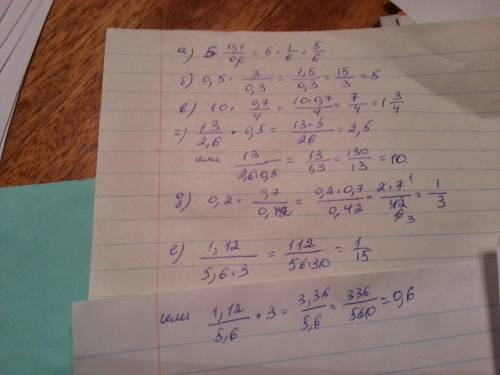 а) 5 · 0,1/0,6 = 5 · 1/6 = 5/6
б) 0,5 · 3/0,3 = 1,5/0,3 = 15/3 = 5
в) 10 · 0,7/4 = 10·0,7/4 = 7/4 = 1 3/4
г) 13/2,6 · 0,5 = 13·5/26 = 2,5
или 13/2,6·0,5 = 13/1,3 = 130/13 = 10
д) 0,2 · 0,7/0,42 = 0,2·0,7/0,42 = 2·7 1/42 6 3 = 1/3
е) 1,12/5,6·3 = 112/56·30 = 1/15
или 1,12/5,6 · 3 = 3,36/5,6 = 336/560 = 0,6